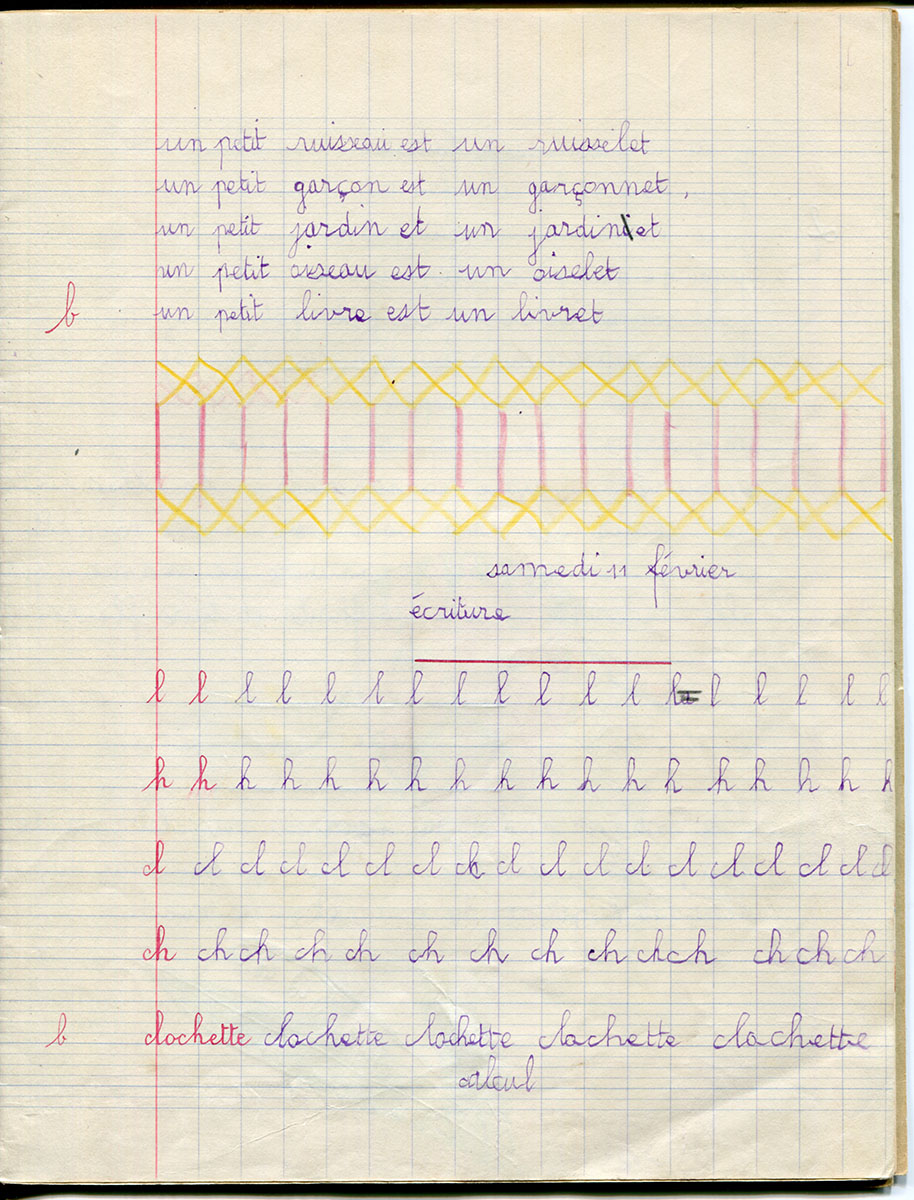 un petit ruisseau est un ruisselet
un petit garçon est un garçonnet,
un petit jardin et un jardinet
un petit oiseau est un oiselet
b un petit livre est un livret
samedi 11 février
écriture
l l l l l l l l l l l l l l l l l l
h h h h h h h h h h h h h h h h h h
cl cl cl cl cl cl cl ch cl cl cl cl cl cl cl cl cl cl
ch ch ch ch ch ch ch ch ch ch ch ch ch ch
b clochette clochette clochette clochette clochette
calcul